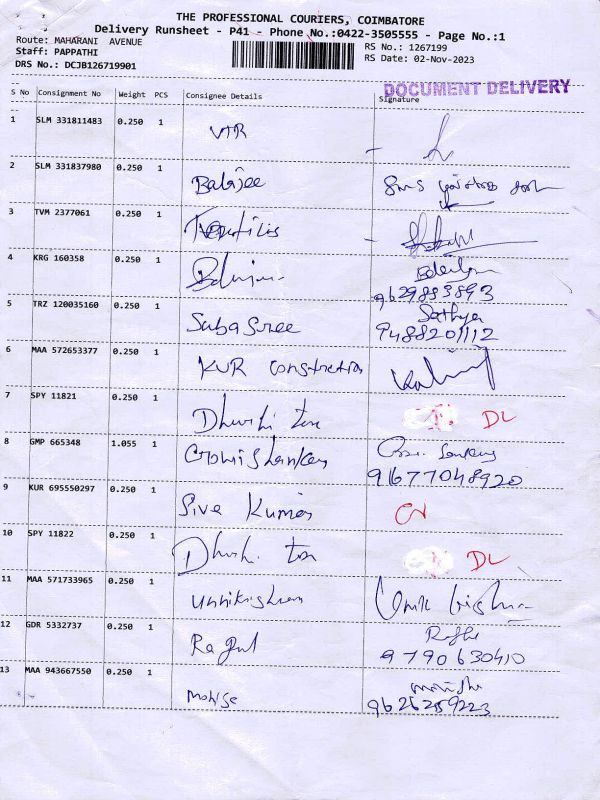 THE PROFESSIONAL COURIERS, COIMBATORE
Delivery Runsheet - P41 - Phone No.:0422-3505555 - Page No.:1
Route: MAHARANI AVENUE
RS No.: 1267199
Staff: PAPPATHI
RS Date: 02-Nov-2023
DRS No.: DCJB126719901
DOCUMENT DELIVERY
S No Consignment No Weight PCS Consignee Details Signature
1 SLM 331811483 0.250 1 VTR
2 SLM 331837980 0.250 1 Balajee
3 TVM 2377061 0.250 1
4 KRG 160358 0.250 1
9629893893
5 TRZ 120035160 0.250 1 Subasree Sathya
9488201112
6 MAA 572653377 0.250 1 KUR constraction
7 SPY 11821 0.250 1 DL
8 GMP 665348 1.055 1 Gowrishankar
9677048920
9 KUR 695550297 0.250 1 Siva Kumar
10 SPY 11822 0.250 1 DL
11 MAA 571733965 0.250 1 Unnikrishnan
12 GDR 5332737 0.250 1 Ragul
9790630410
13 MAA 943667550 0.250 1
9626259223